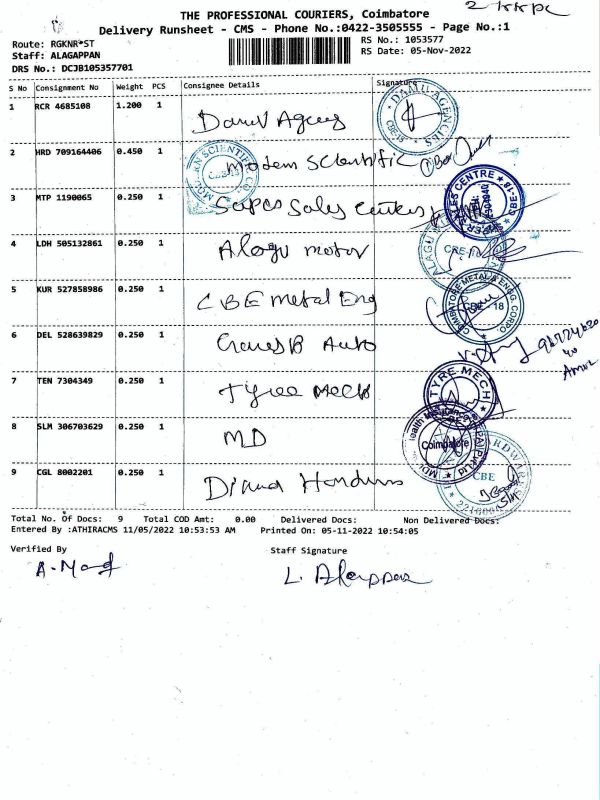 THE PROFESSIONAL COURIERS, Coimbatore
Delivery Runsheet - CMS - Phone No.:0422-3505555 - Page No.:1
Route: RGKNR*ST
RS No.: 1053577
Staff: ALAGAPPAN
RS Date: 05-Nov-2022
DRS No.: DCJB105357701
S No Consignment No Weight PCS Consignee Details Signature
1 RCR 4685108 1.200 1
DAMU AGENCIES
2 HRD 709164406 0.450 1 Modern Scientific
3 MTP 1190065 0.250 1 Sales
4 LDH 505132861 0.250 1 Alagu motor
5 KUR 527858986 0.250 1 CBE metal Eng
COIMBATORE METAL & ENGG. CORPO.
CBE 18
6 DEL 528639829 0.250 1 Auto
7 TEN 7304349 0.250 1 Tyree Mech
TYRE MECH
8 SLM 306703629 0.250 1 MD
Coimbatore
9 CGL 8002201 0.250 1
CBE
Total No. Of Docs: 9 Total COD Amt: 0.00 Delivered Docs: Non Delivered Docs:
Entered By :ATHIRACMS 11/05/2022 10:53:53 AM Printed On: 05-11-2022 10:54:05
Verified By Staff Signature